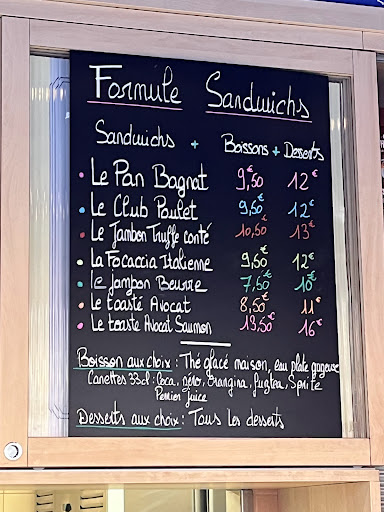 Formule Sandwichs
Sandwichs + Boissons + Desserts
Le Pan Bagnat 9,50€ 12€
Le Club Poulet 9,50€ 12€
Le Jambon Truffe conté 10,50€ 13€
La Focaccia Italienne 9,50€ 12€
le jambon Beurre 7,50€ 10€
Le toasté Avocat 8,50€ 11€
Le toaste Avocat Saumon 13,50€ 16€
Boisson aux choix : Thé glacé maison, eau plate gazeuse
Canettes 33cl : Coca, zéro, Orangina, fuztea, Sprite
Perrier juice
Desserts aux choix : Tous les desserts